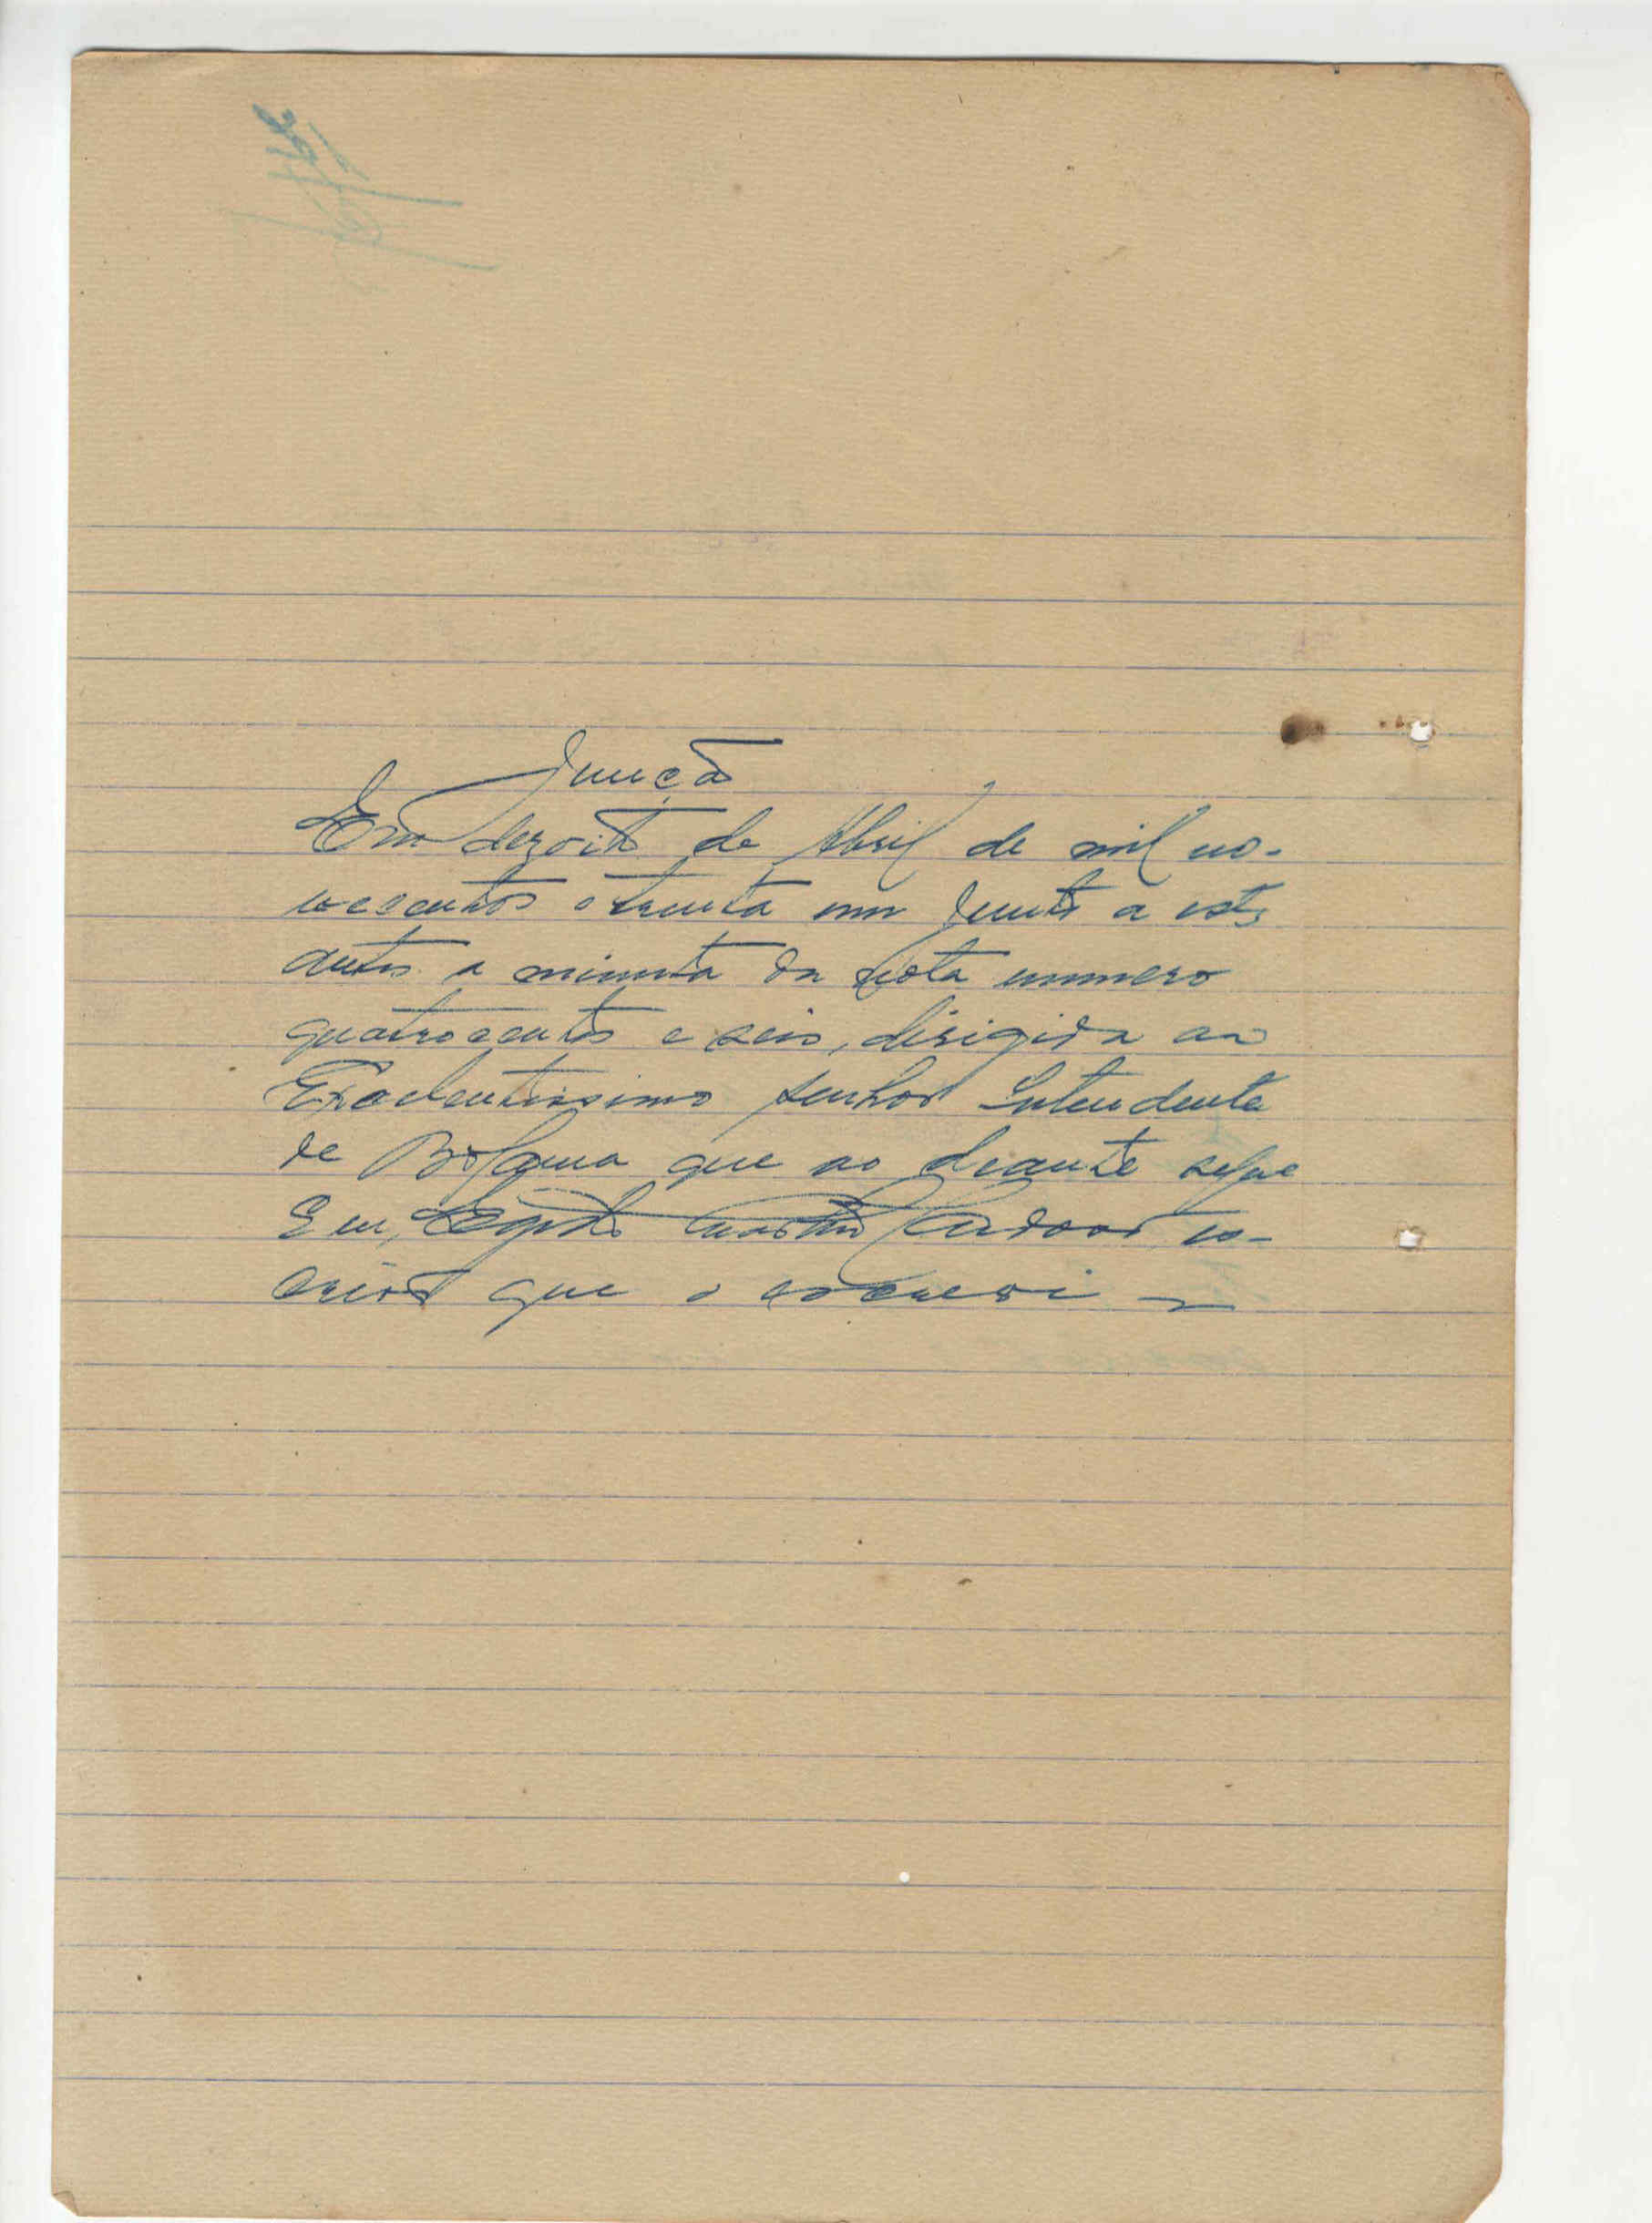 Junção
Em dezoito de Abril de mil no-
vecentos e trinta um junto a estes
autos a minuta da nota numero
quatrocentos e seis, dirigida ao
Excelentissimo Senhor Intendente
de Bolama que ao deante segue
Eu, Cardoso es-
crivão que o escrevi